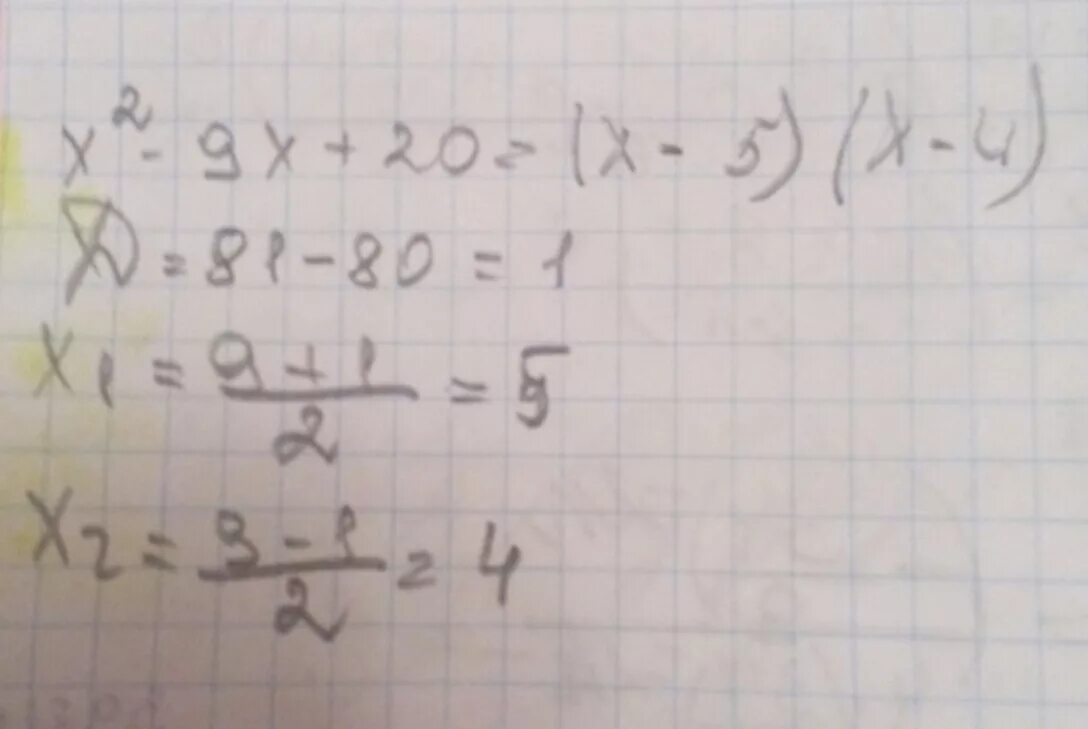 x² - 9x + 20 = (x - 5)(x - 4)
D = 81 - 80 = 1
x₁ = (9 + 1)/2 = 5
x₂ = (9 - 1)/2 = 4